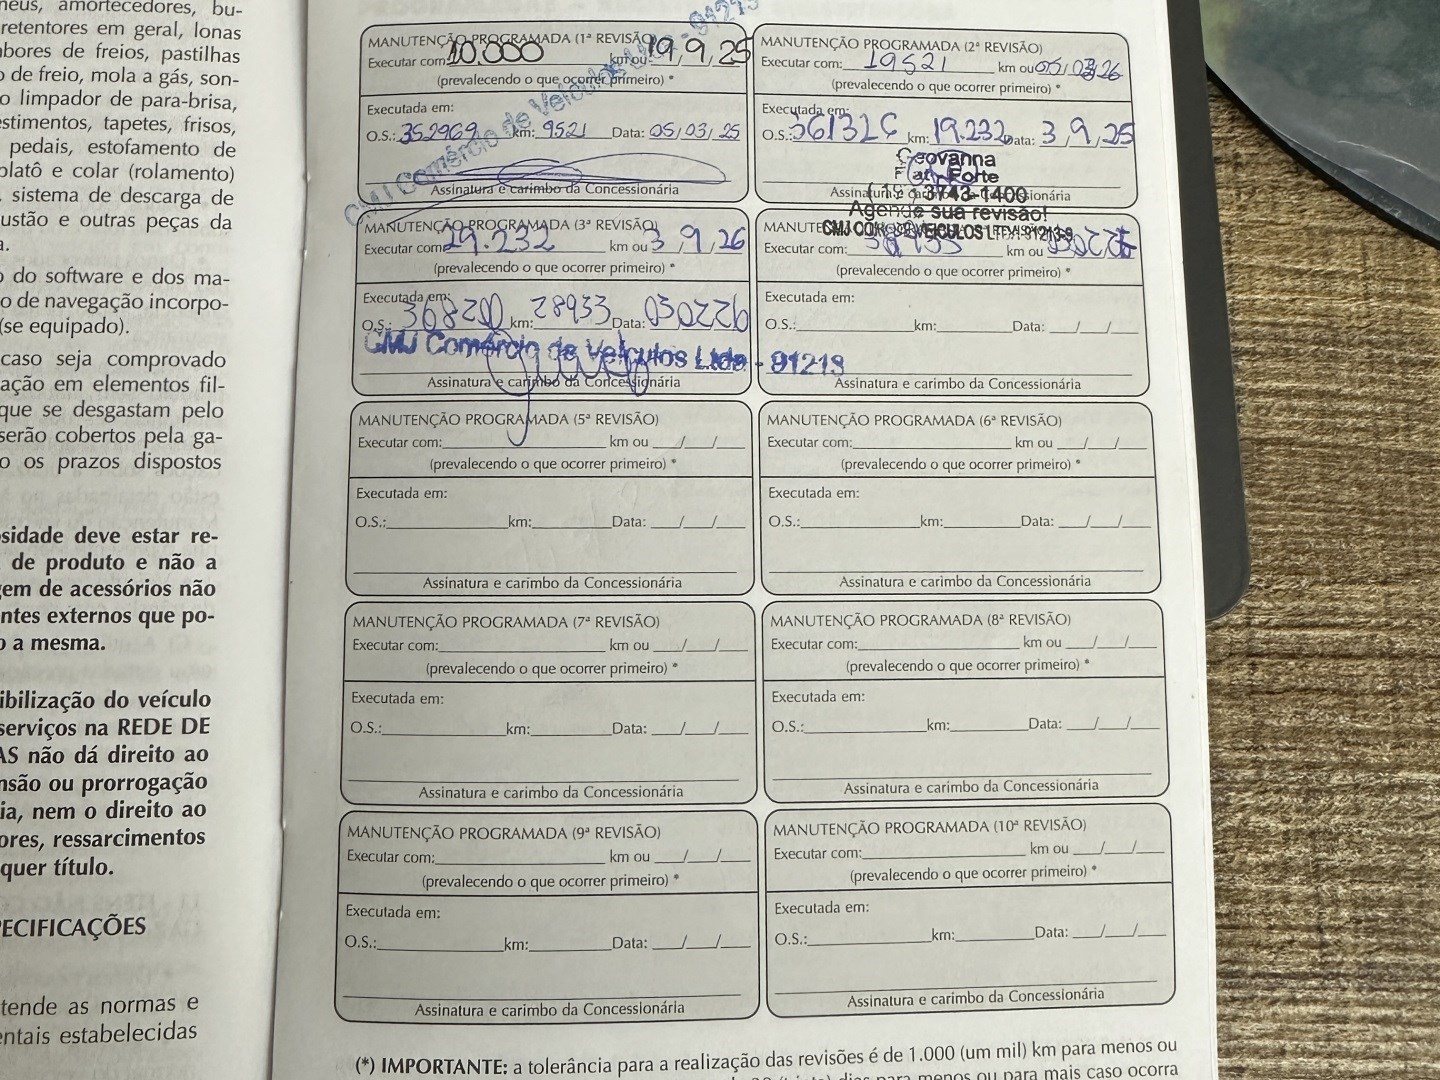 neus, amortecedores, bu-
retentores em geral, lonas
bores de freios, pastilhas
o de freio, mola a gás, son-
o limpador de para-brisa,
estimentos, tapetes, frisos,
pedais, estofamento de
platô e colar (rolamento)
sistema de descarga de
ustão e outras peças da
a.
o do software e dos ma-
o de navegação incorpo-
(se equipado).
caso seja comprovado
ação em elementos fil-
que se desgastam pelo
serão cobertos pela ga-
o os prazos dispostos
sidade deve estar re-
de produto e não a
gem de acessórios não
entes externos que po-
o a mesma.
ibilização do veículo
serviços na REDE DE
AS não dá direito ao
nsão ou prorrogação
ia, nem o direito ao
ores, ressarcimentos
quer título.
PECIFICAÇÕES
tende as normas e
entais estabelecidas
MANUTENÇÃO PROGRAMADA (1ª REVISÃO)
Executar com: 10.000 km ou 19/9/25
(prevalecendo o que ocorrer primeiro) *
Executada em:
O.S.: 352969 km: 9521 Data: 05/03/25
Assinatura e carimbo da Concessionária
CMJ Comércio de Veículos Ltda - 91213
MANUTENÇÃO PROGRAMADA (2ª REVISÃO)
Executar com: 19521 km ou 05/03/26
(prevalecendo o que ocorrer primeiro) *
Executada em:
O.S.: km: 19.232 Data: 3/9/25
Geovanna
Forte
3743-1400
Assinatura e carimbo da Concessionária
Agende sua revisão!
MANUTENÇÃO PROGRAMADA (3ª REVISÃO)
Executar com: 29.232 km ou 3/9/26
(prevalecendo o que ocorrer primeiro) *
Executada em:
O.S.: 368200 km: 28933 Data: 030226
CMJ Comércio de Veículos Ltda - 91213
Assinatura e carimbo da Concessionária
Executar com: km ou
(prevalecendo o que ocorrer primeiro) *
Executada em:
O.S.: km: Data: / /
Assinatura e carimbo da Concessionária
MANUTENÇÃO PROGRAMADA (5ª REVISÃO)
Executar com: km ou / /
(prevalecendo o que ocorrer primeiro) *
Executada em:
O.S.: km: Data: / /
Assinatura e carimbo da Concessionária
MANUTENÇÃO PROGRAMADA (6ª REVISÃO)
Executar com: km ou / /
(prevalecendo o que ocorrer primeiro) *
Executada em:
O.S.: km: Data: / /
Assinatura e carimbo da Concessionária
MANUTENÇÃO PROGRAMADA (7ª REVISÃO)
Executar com: km ou / /
(prevalecendo o que ocorrer primeiro) *
Executada em:
O.S.: km: Data: / /
Assinatura e carimbo da Concessionária
MANUTENÇÃO PROGRAMADA (8ª REVISÃO)
Executar com: km ou / /
(prevalecendo o que ocorrer primeiro) *
Executada em:
O.S.: km: Data: / /
Assinatura e carimbo da Concessionária
MANUTENÇÃO PROGRAMADA (9ª REVISÃO)
Executar com: km ou / /
(prevalecendo o que ocorrer primeiro) *
Executada em:
O.S.: km: Data: / /
Assinatura e carimbo da Concessionária
MANUTENÇÃO PROGRAMADA (10ª REVISÃO)
Executar com: km ou / /
(prevalecendo o que ocorrer primeiro) *
Executada em:
O.S.: km: Data: / /
Assinatura e carimbo da Concessionária
(*) IMPORTANTE: a tolerância para a realização das revisões é de 1.000 (um mil) km para menos ou
dias para menos ou para mais caso ocorra